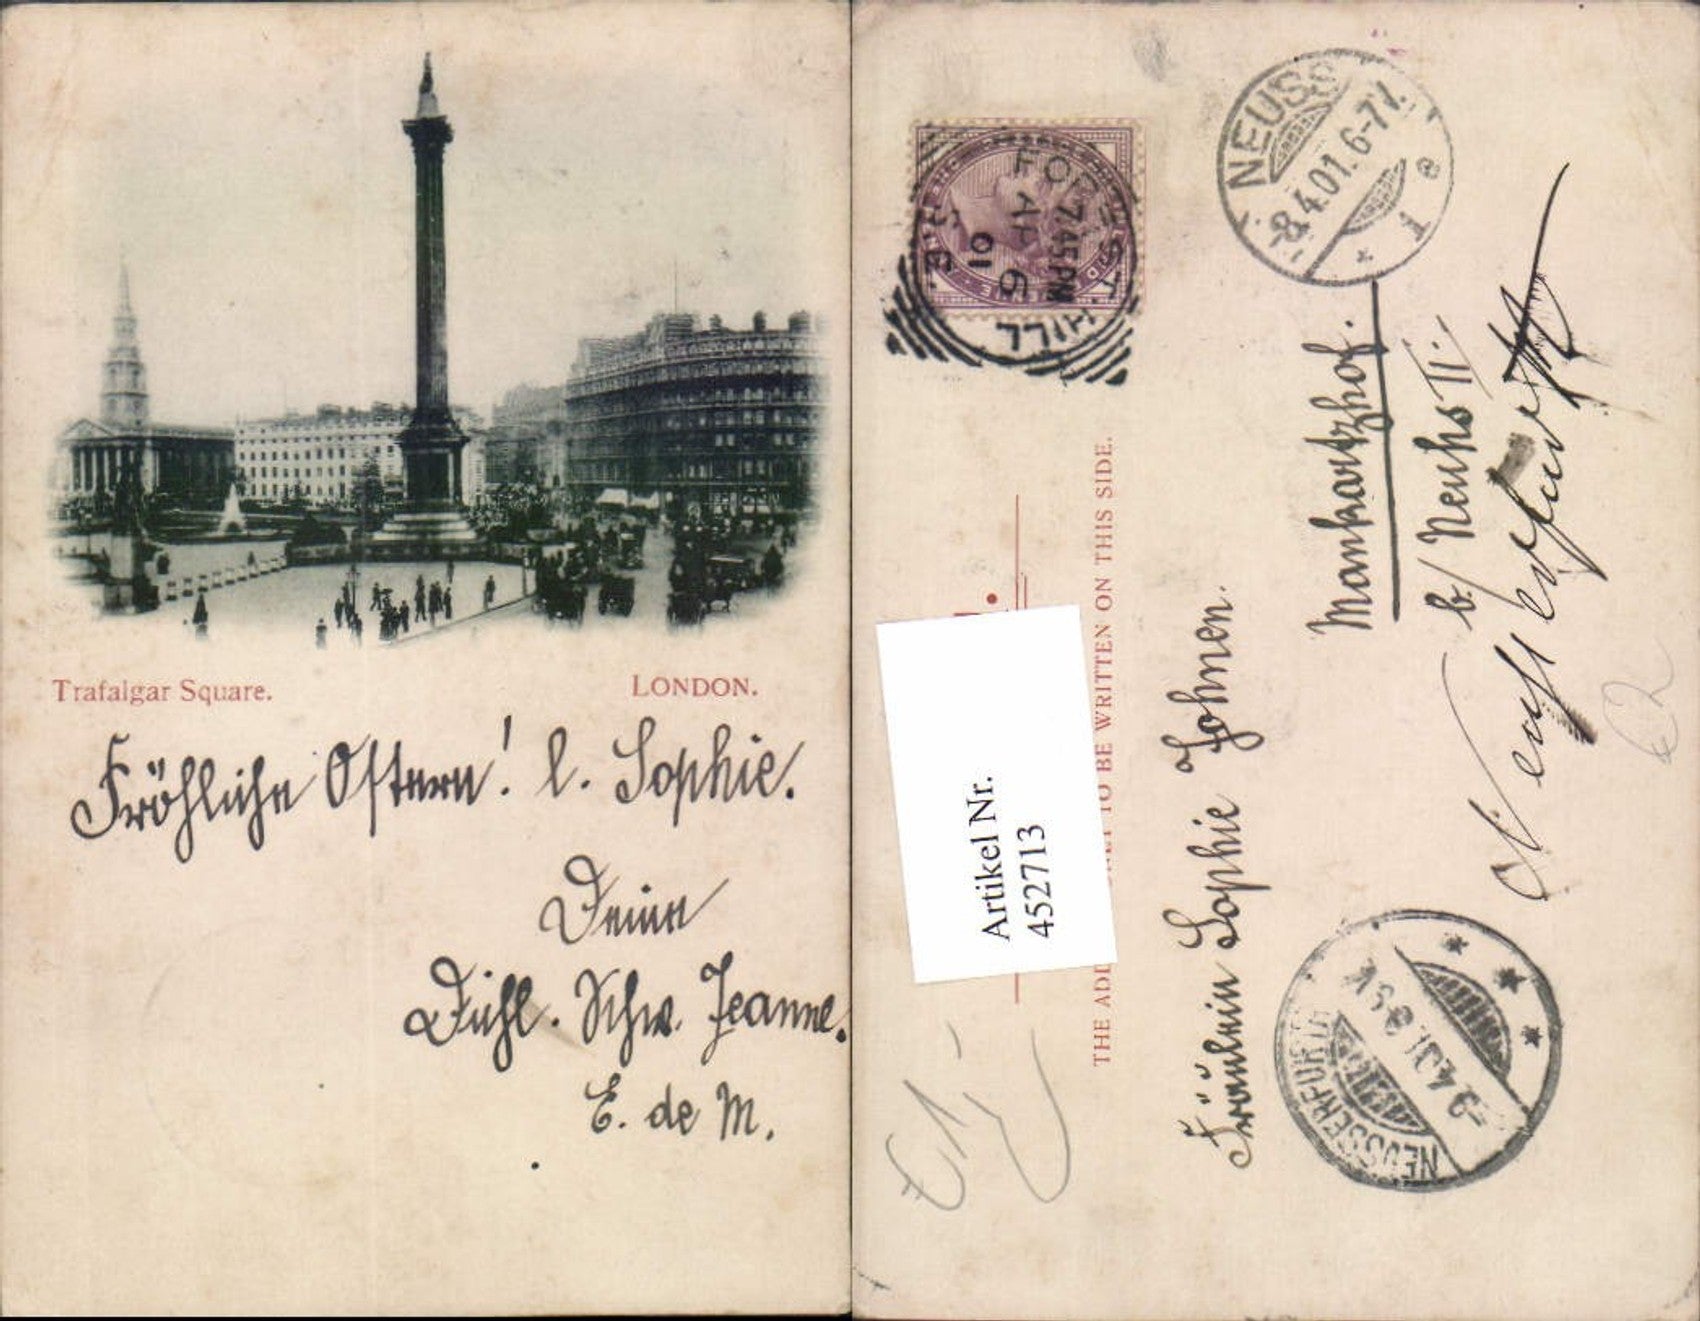 Trafalgar Square.
LONDON.
Fröhliche Ostern! l. Sophie.
Deine
Dichl. Schw. Jeanne.
E. de M.
FOREST HILL
7.45PM
AP 6
01
S.E.
NEUSS
-8.4.01.6-7V.
* 1 e
THE ADD TO BE WRITTEN ON THIS SIDE.
Artikel Nr.
452713
Fräulein Sophie Johnen.
Mankartzhof.
b/ Neuhs II.
NEUSSERFURTH
-9.4.01. 8-9V
62